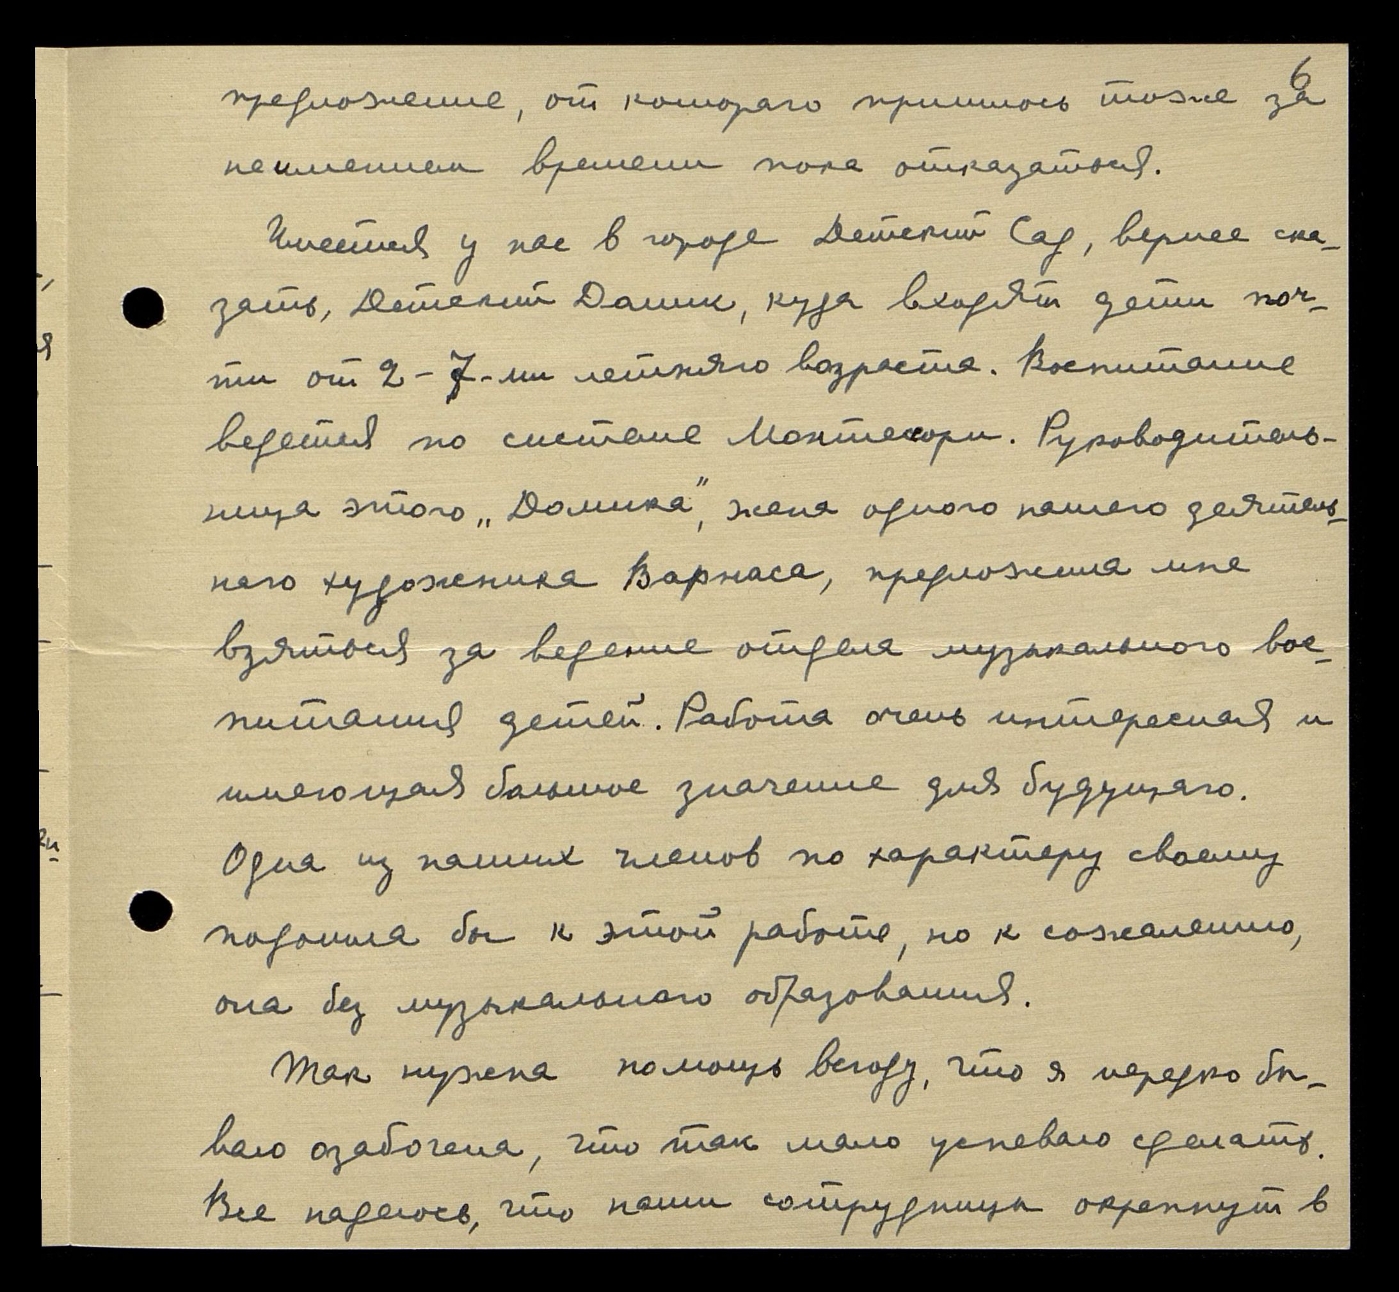 6
предложение, от котораго пришлось тоже за
неимением времени пока отказаться.
Имеется у нас в городе Детский Сад, вернее ска-
зать, Детский Домик, куда входят дети поч-
ти от 2-7-ми летняго возраста. Воспитание
ведется по системе Монтесори. Руководитель-
ница этого „Домика", жена одного нашего деятель-
наго художника Варнаса, предложила мне
взяться за ведение отдела музыкальнаго вос-
питания детей. Работа очень интересная и
имеющая большое значение для будущаго.
Одна из наших членов по характеру своему
подошла бы к этой работе, но к сожалению,
она без музыкальнаго образования.
Так нужна помощь всюду, что я нередко бы-
ваю озабочена, что так мало успеваю сделать.
Все надеюсь, что наши сотрудницы окрепнут в